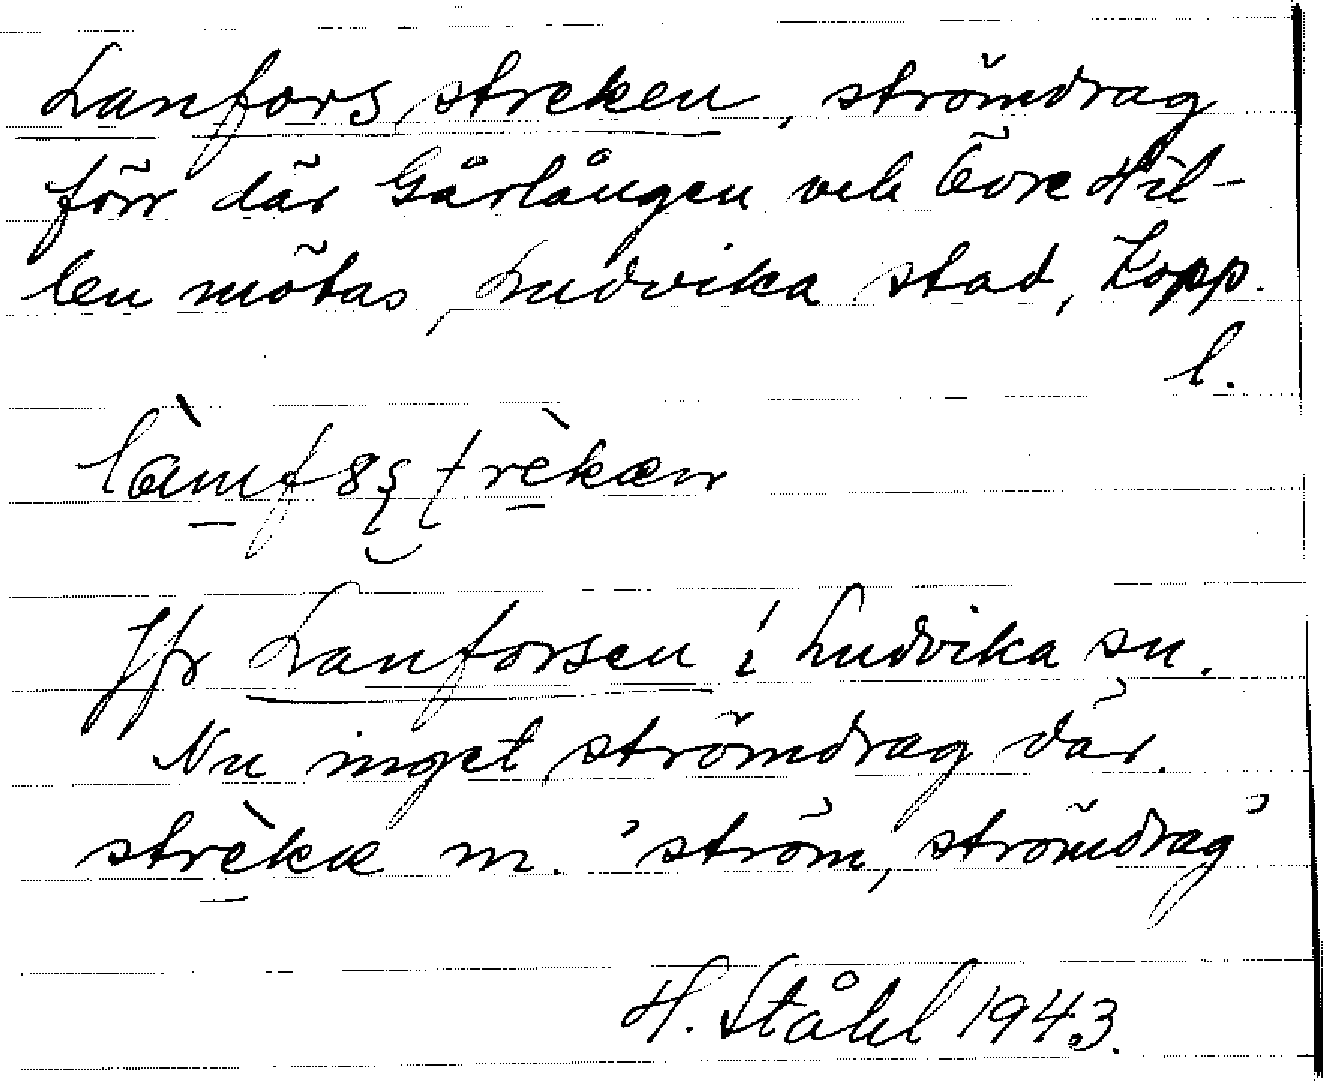 Lanforsstreken, strömdrag
förr där Gårlången och Övre Hil-
len mötas, Ludvika stad, Kopp.
l.
Jfr Lanforsen i Ludvika sn.
Nu inget strömdrag där.
strèkæ m. 'ström, strömdrag'
H. Ståhl 1943.